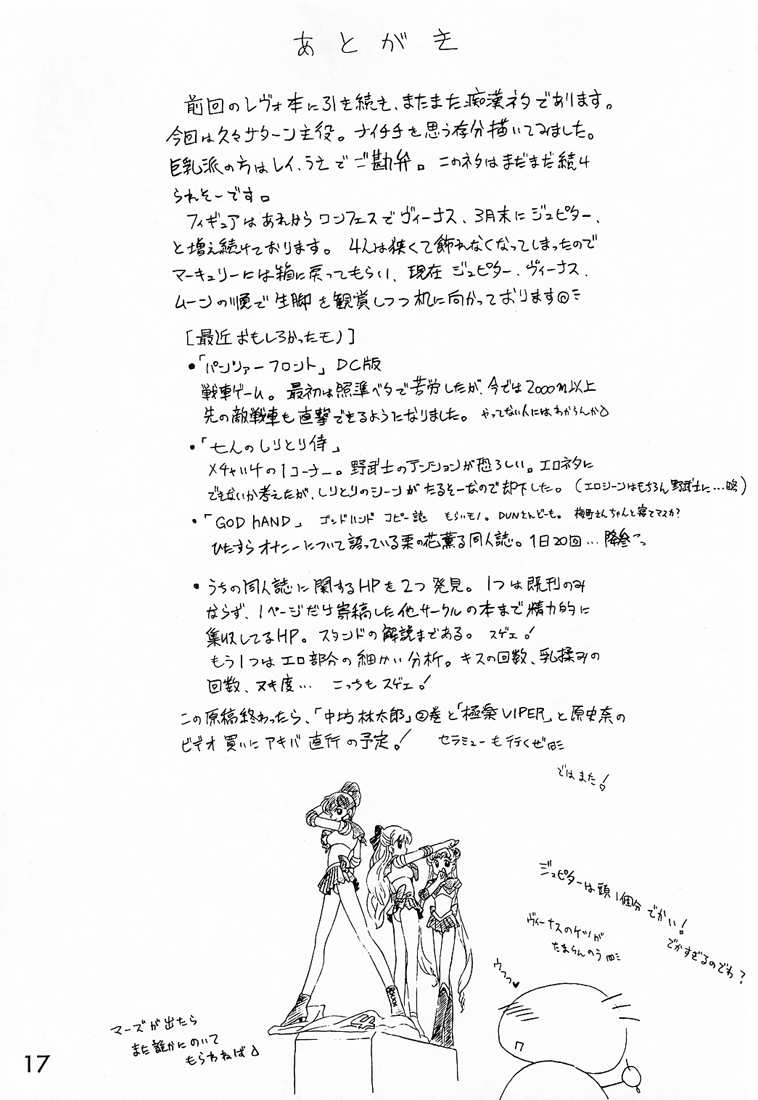 あとがき
前回のレヴォ本に引き続き、またまた痴漢ネタであります。
今回は久々サターン主役。ナイチチを思う存分描いてみました。
巨乳派の方はレイ、うさでご勘弁。このネタはまだまだ続け
られそーです。
フィギュアはあれからワンフェスでヴィーナス、3月末にジュピター、
と増え続けております。4人は狭くて飾れなくなってしまったので
マーキュリーには箱に戻ってもらい、現在ジュピター、ヴィーナス、
ムーンの順で生脚を観賞しつつ机に向かっております
[最近おもしろかったモノ]
●「パンツァーフロント」DC版
戦車ゲーム。最初は照準ベタで苦労したが、今では2000m以上
先の敵戦車も直撃できるようになりました。やってない人にはわからんか
●「七人のしりとり侍」
メチャイケの1コーナー。野武士のテンションが恐ろしい。エロネタに
できないか考えたが、しりとりのシーンがたるそーなので却下した。(エロシーンはもちろん野武士に…略)
●「GOD HAND」ゴッドハンド コピー誌 もらいモノ。DUNさんどーも。
ひたすらオナニーについて語っている栗の花薫る同人誌。1日20回…降参
●うちの同人誌に関するHPを2つ発見。1つは既刊のみ
ならず、1ページだけ寄稿した他サークルの本まで精力的に
集収してるHP。スタンドの解説まである。スゲェ!
もう1つはエロ部分の細かい分析。キスの回数、乳揉みの
回数、ヌキ度… こっちもスゲェ!
この原稿終わったら、「中坊林太郎」②巻と「極楽VIPER」と原史奈の
ビデオ買いにアキバ直行の予定。! セラミューも行くぜ
ではまた!
ジュピターは頭1個分でかい!
でかすぎるのでわ?
ヴィーナスのケツが
たまらんのう
ウッウッ♥
マーズが出たら
また誰かにのいて
もらわねば
17